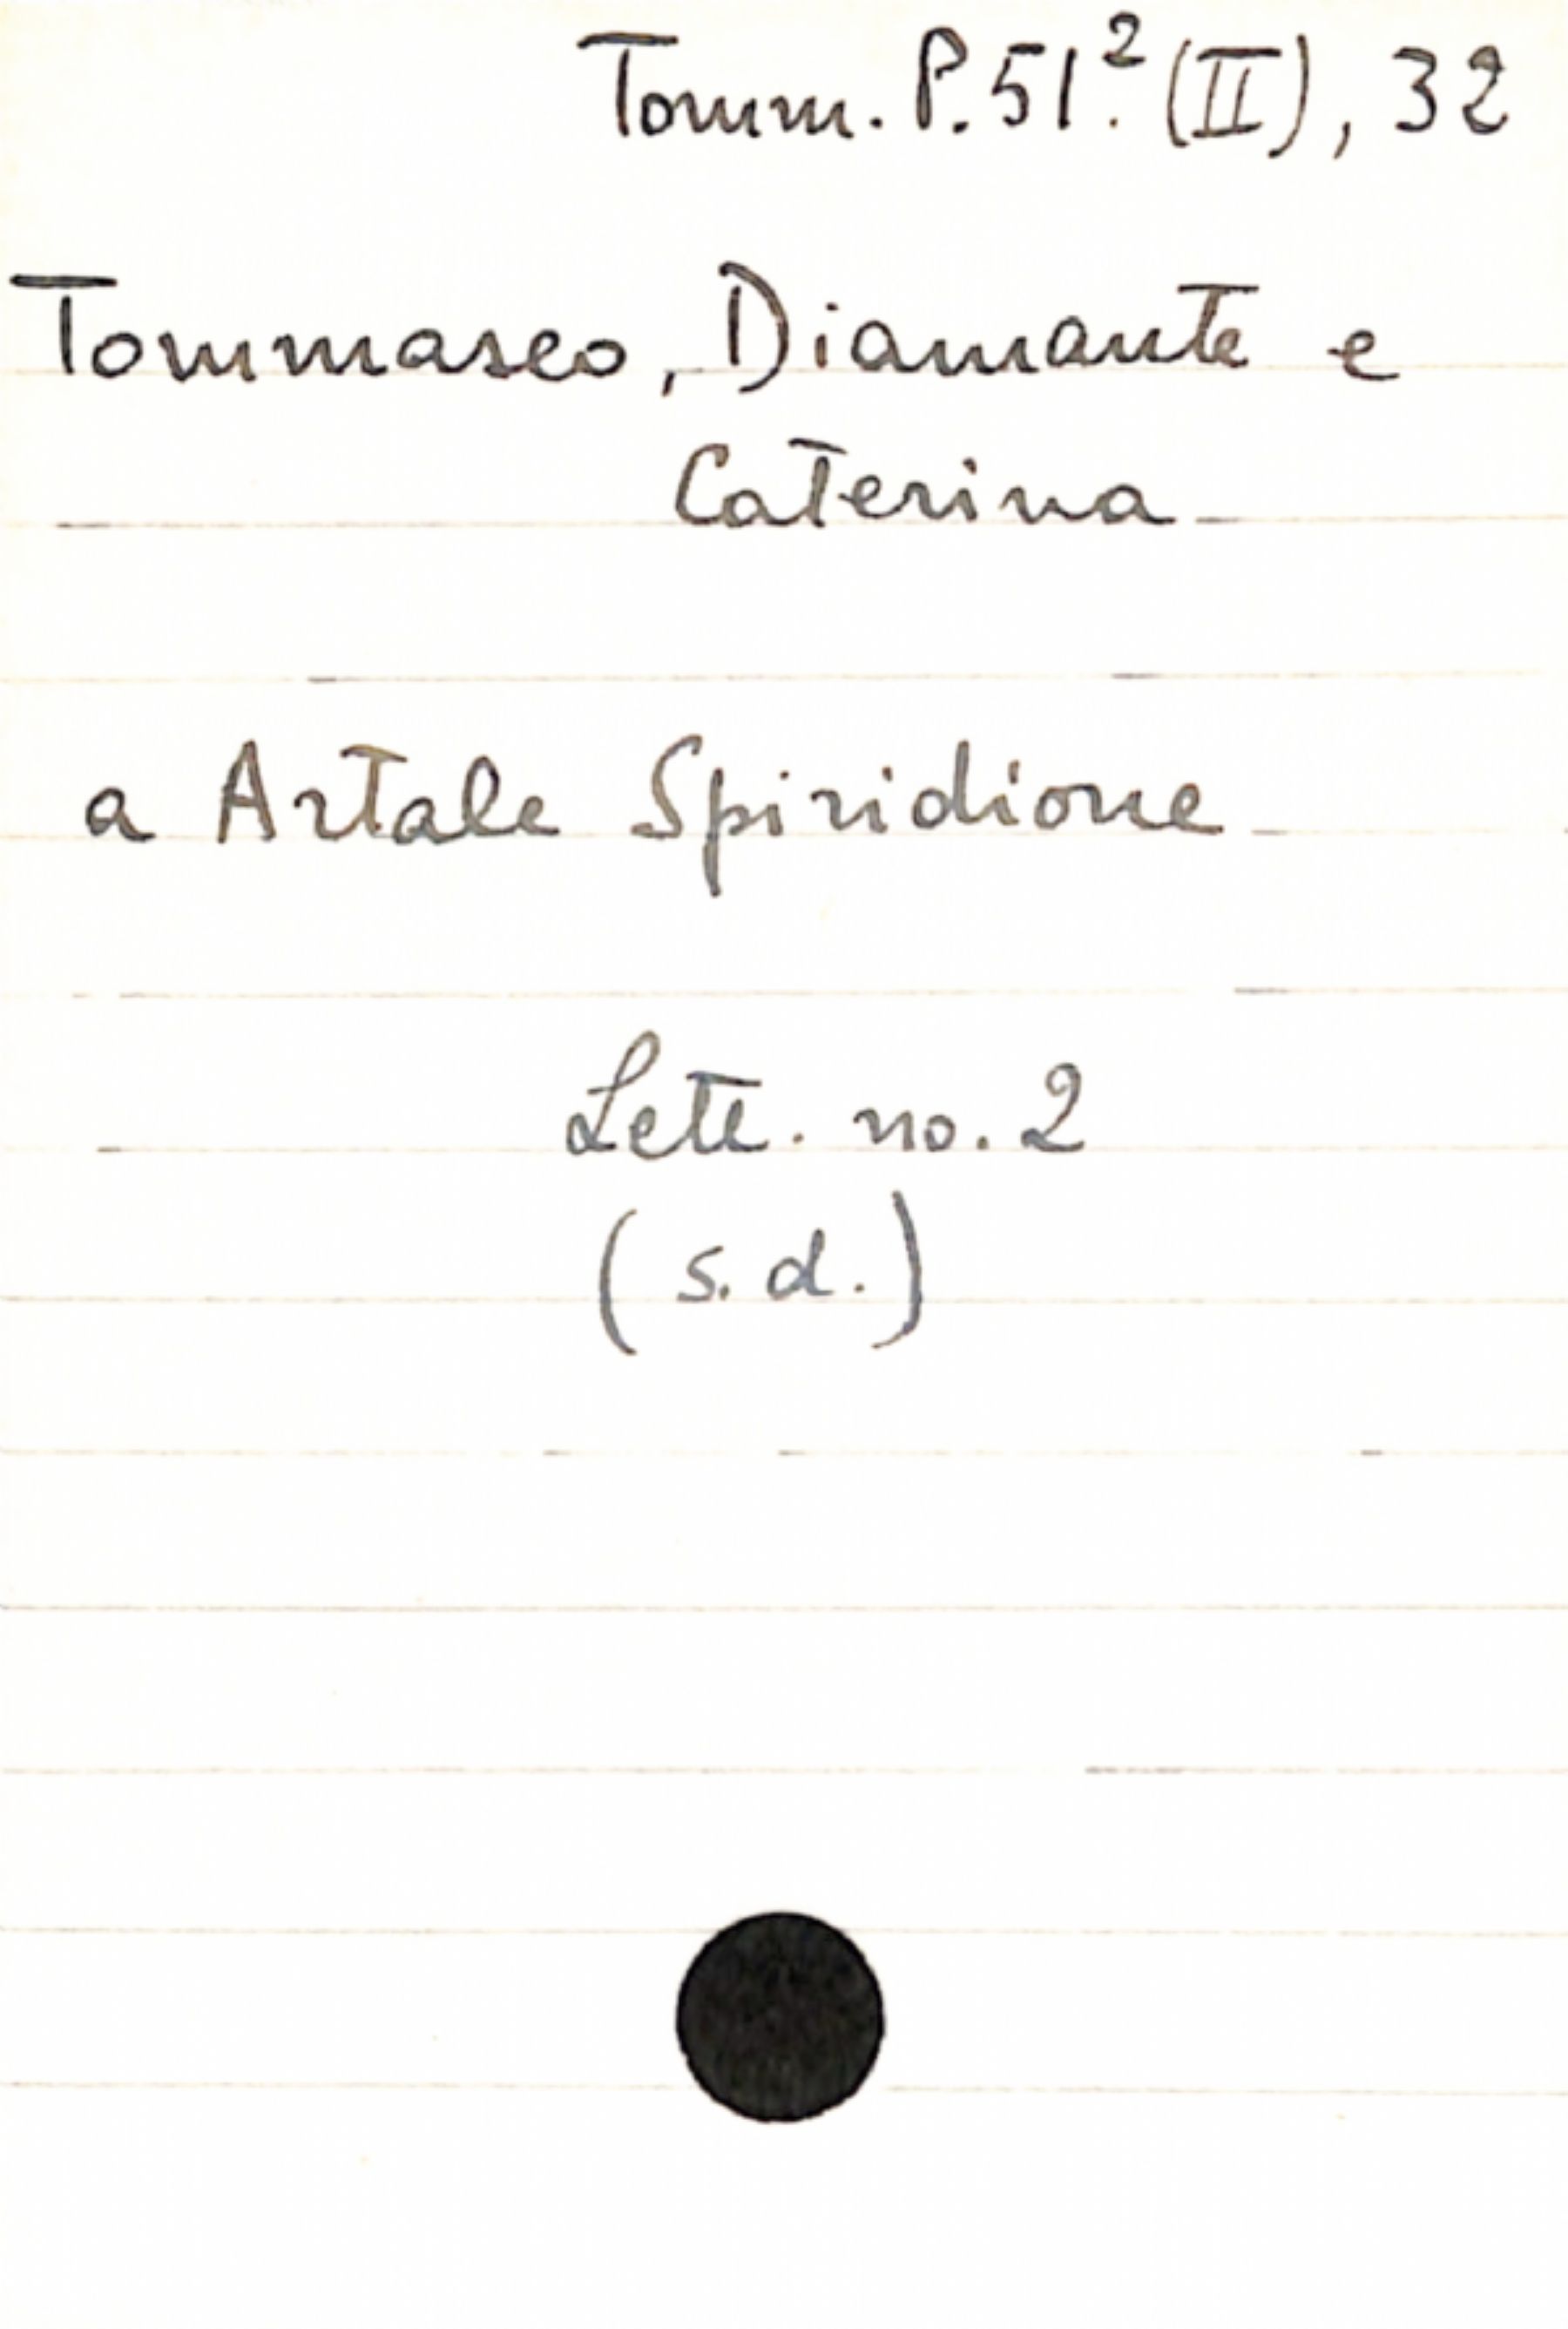 Tomm. P.51.² (II), 32
Tommaseo, Diamante e
Caterina
a Artale Spiridione
Lett. no. 2
(s.d.)